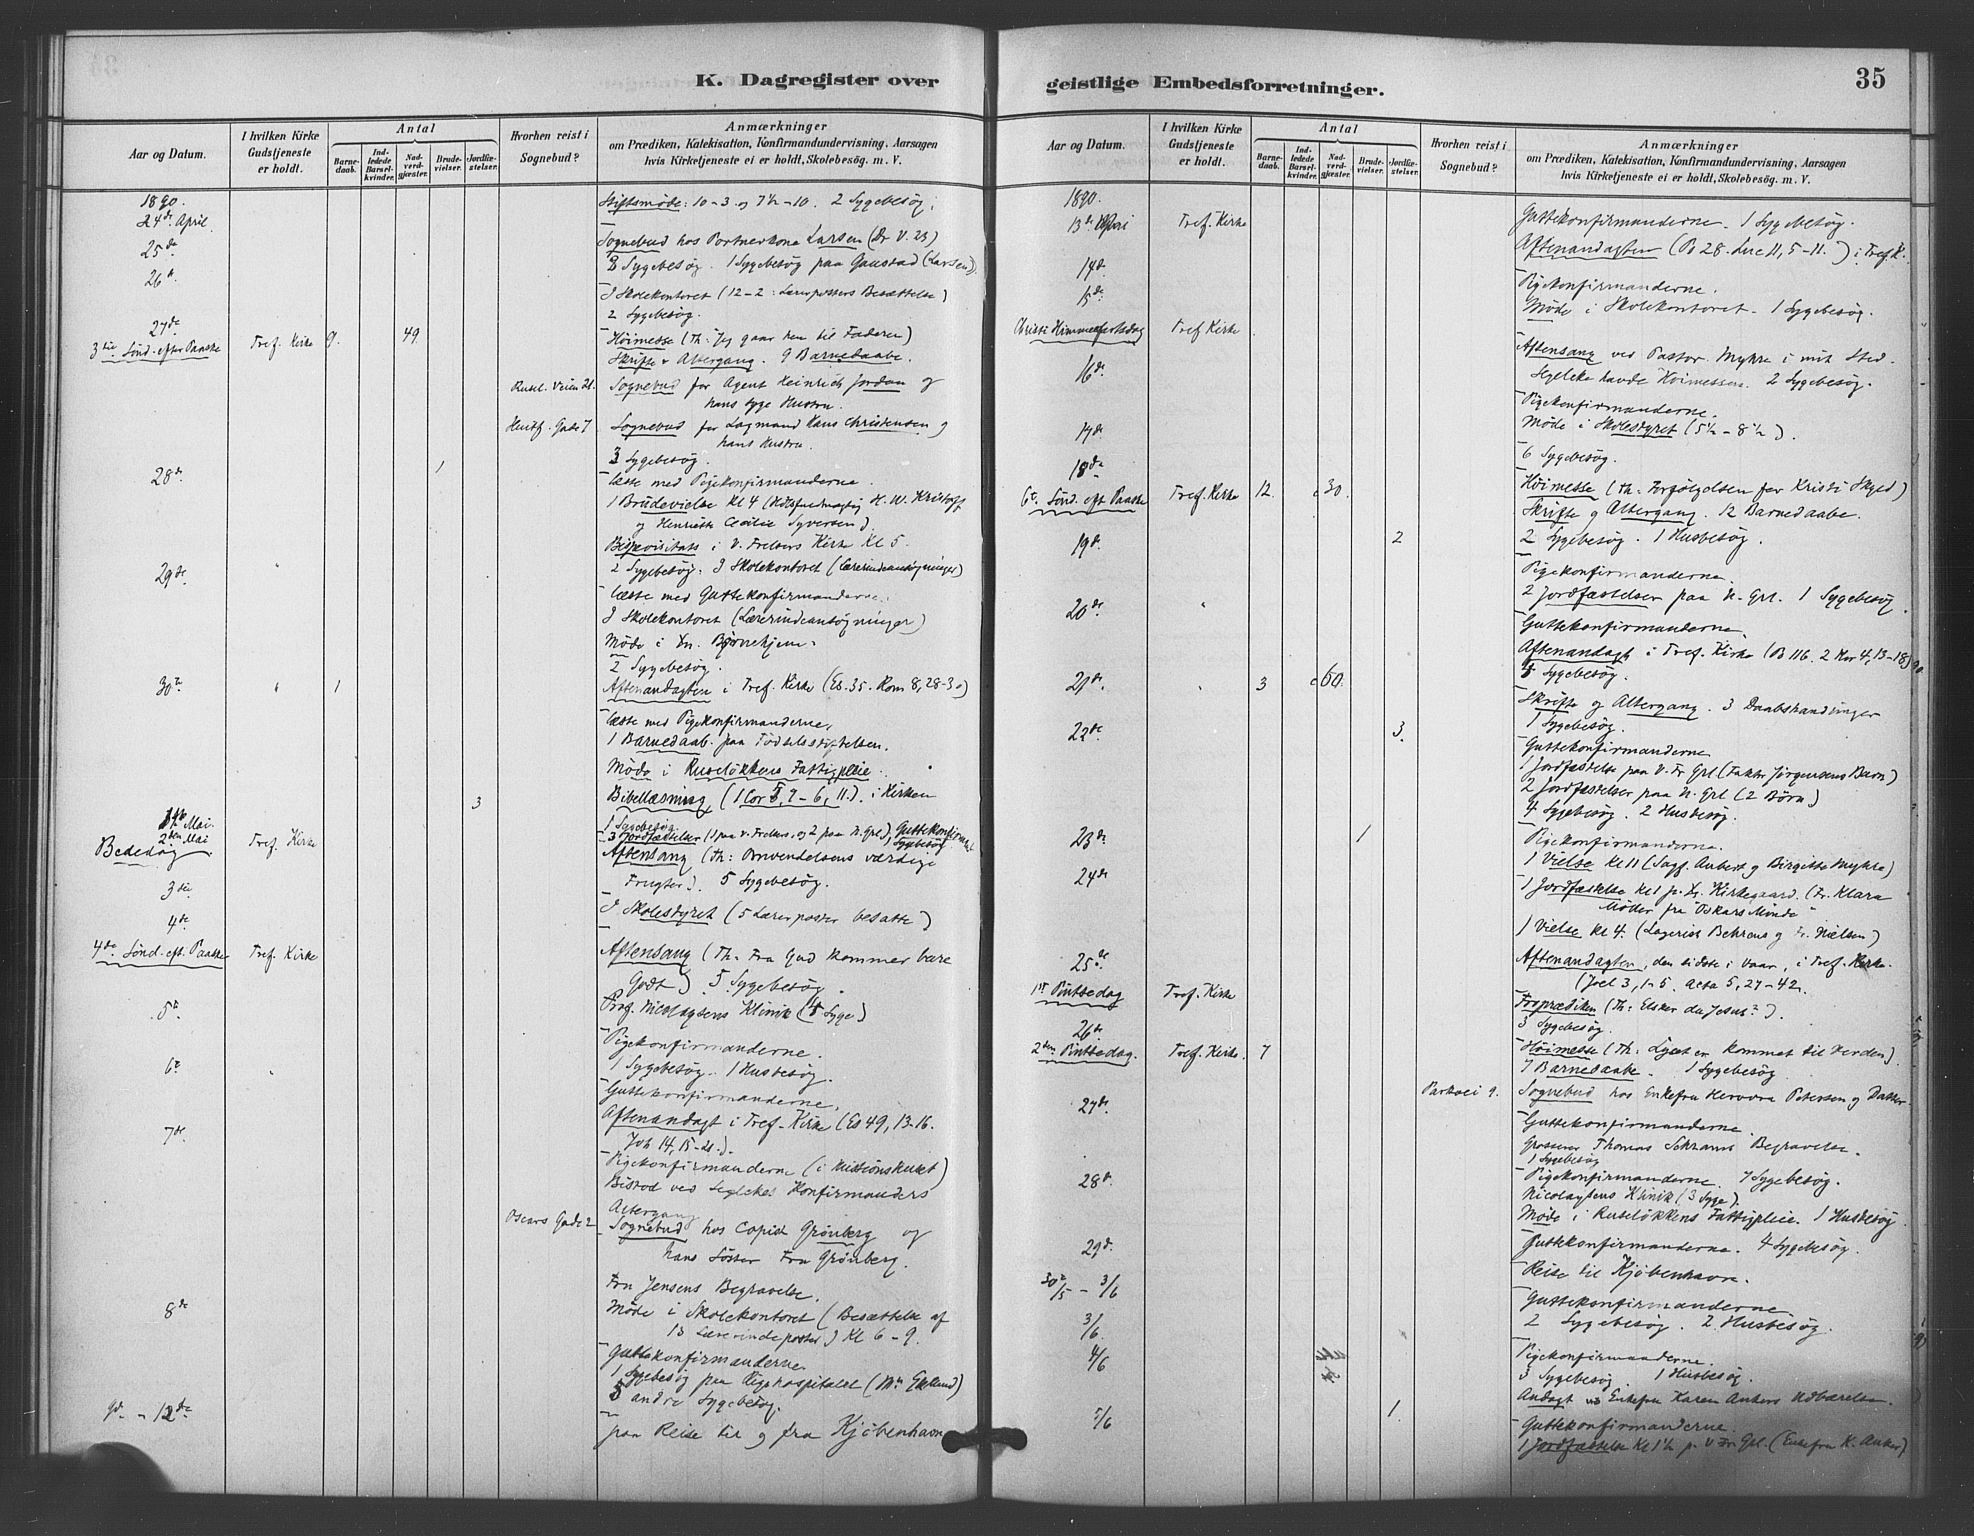 K. Dagregister over
Aar og Datum.
I hvilken Kirke Gudstjeneste er holdt.
Antal
Barne-daab.
Ind-ledede Barsel-kvinder.
Nad-verd-gjæster.
Brude-vielser.
Jordfæ-stelser.
Hvorhen reist i Sognebud?
Anmærkninger
om Prædiken, Katekisation, Konfirmandundervisning, Aarsagen
hvis Kirketjeneste ei er holdt, Skolebesög. m. V.
1890.
24de April. Stiftsmöde: 10-3 og 7½-10. 2 Sygebesög.
25de Sognebud hos Portnerkone Larsen (Dr V. 23)
3 Sygebesög. 1 Sygebesög paa Gaustad (Larsen)
26de I Skolekontoret (12-2: Lærerposters Besættelse)
2 Sygebesög.
27de
3die Sönd. efter Paaske Tref. Kirke 9. 49. Höimesse (Th: Jeg gaar hen til Faderen)
Skrifte & Altergang. 9 Barnedaabe.
Rusel. Veien 21. Sognebud for Agent Heinrich Jordan og
hans syge Hustru.
Gade 7 Sognebud for Lagmand Hans Christensen og
hans Hustru.
3 Sygebesög.
28de 1 Læste med Pigekonfirmanderne.
1 Brudevielse Kl 4 H. W. Kristoff
og Henriette Cecilie Syversen)
Bispevisitats i V. Frelsers Kirke Kl 5.
2 Sygebesög. I Skolekontoret (Lærerindeansögninger)
29de " Læste med Guttekonfirmanderne.
I Skolekontoret (Lærerindeansögninger)
Möde i Börnehjem.
2 Sygebesög.
30te " 1 Aftenandagten i Tref. Kirke (Es. 35. Rom 8, 28-30)
Læste med Pigekonfirmanderne,
1 Barnedaab paa Födselsstiftelsen.
Möde i Ruselökkens Fattigpleie.
Bibellæsning i Kirken
1ste Mai. 3 1 Sygebesög.
3 Jordfæstelser (1 paa V. Frelsers, og 2 paa N. Grl), Guttekonfirmand.
Sygebesög
2den Mai
Bededag Tref. Kirke Aftensang (Th: Omvendelsens værdige
Frugter). 5 Sygebesög.
3die I Skolestyret (5 Lærerposter besatte)
4de
4de Sönd. eft. Paaske Tref. Kirke Aftensang (Th. Fra Gud kommer bare
Godt) 5 Sygebesög.
5te Prof. Nicolaysens Klinik (5 Syge)
Pigekonfirmanderne.
6te " 1 Sygebesög. 1 Husbesög.
Guttekonfirmanderne.
Aftenandagt i Tref. Kirke (Es 49, 13-16.
Joh 14, 15-21.).
7de Pigekonfirmanderne (i Missionshuset)
Bistod ved Konfirmanders
Altergang
Oscars Gade 2 Sognebud hos Copist Grönberg og
hans Söster Fru Grönberg.
Fru Jensens Begravelse.
8de Möde i Skolekontoret (Besættelse af
13 Lærerindeposter) Kl 6-9.
Guttekonfirmanderne
1 Sygebesög paa Rigshospitalet
5 andre Sygebesög.
9de - 12de paa Reise til og fra Kjöbenhavn
geistlige Embedsforretninger.
35
Aar og Datum.
I hvilken Kirke Gudstjeneste er holdt.
Antal
Barne-daab.
Ind-ledede Barsel-kvinder.
Nad-verd-gjæster.
Brude-vielser.
Jordfæ-stelser.
Hvorhen reist i Sognebud?
Anmærkninger
om Prædiken, Katekisation, Konfirmandundervisning, Aarsagen
hvis Kirketjeneste ei er holdt, Skolebesög. m. V.
1890.
13de Tref. Kirke Guttekonfirmanderne. 1 Sygebesög.
Aftenandagten (Ps 28. Luc 11, 5-11.) i Tref. K.
14de Pigekonfirmanderne.
15de Möde i Skolekontoret. 1 Sygebesög.
Christi Himmelfartsdag Tref Kirke Aftensang ved Pastor Myhre i mit Sted.
havde Höimessen. 2 Sygebesög.
16de Pigekonfirmanderne.
Möde i Skolestyret (5½-8½).
17de 6 Sygebesög.
18de
6te Sönd. eft Paaske Tref. Kirke 12. c 30. Höimesse (Th: Forfölgelsen for Kristi Skyld)
Skrifte og Altergang. 12 Barnedaabe.
2 Sygebesög. 1 Husbesög.
19de 2 Pigekonfirmanderne.
2 Jordfæstelser paa N. Grl. 1 Sygebesög.
20de " Guttekonfirmanderne.
Aftenandagt i Tref. Kirke (Ps 116. 2 Kor 4, 13-18)
5 Sygebesög.
21de " 3 c 60. Skrifte og Altergang. 3 Daabshandlinger
1 Sygebesög.
22de 3. Guttekonfirmanderne
1 Jordfæstelse paa V. Fr Grl (Faktor Jörgensens Barn)
2 Jordfæstelser paa N. Grl (2 Börn)
4 Sygebesög. 2 Husbesög.
23de 1 Pigekonfirmanderne.
1 Vielse Kl 11 (Sagf. Aubert og Birgitte Myhre)
24de 1 Jordfæstelse Kl 1 p. Kirkegaard. (Fr. Klara
Möller fra "Oskars Minde"
1 Vielse Kl 4. (Lagerist Behrens og Fr. Nielsen)
25de Aftenandagten, den sidste i Vaar, i Tref. Kirke.
(Joel 3, 1-5. Acta 5, 27-42.
1ste Pintsedag Tref. Kirke Froprædiken (Th: Elsker du Jesus?).
3 Sygebesög.
26de
2den Pintsedag. Tref. Kirke. 7 Höimesse (Th: Lyset er kommet til Verden)
7 Barnedaabe. 1 Sygebesög
Parkvei 9. Sognebud hos Enkefru Petersen og Datter.
27de Guttekonfirmanderne.
Grosserer Thomas Schrams Begravelse.
1 Sygebesög
28de Pigekonfirmanderne. 7 Sygebesög.
Nicolaysens Klinik (3 Syge).
Möde i Ruselökkens Fattigpleie. 1 Husbesög
29de Guttekonfirmanderne. 4 Sygebesög.
30te/5 - 3/6 Reise til Kjöbenhavn.
3/6 Guttekonfirmanderne
2 Sygebesög. 2 Husbesög.
4/6 Pigekonfirmanderne.
3 Sygebesög. 1 Husbesög.
Andagt ved Enkefru Karen Ankers Udbærelse.
5/6 1. Guttekonfirmanderne.
1 Jordfæstelse Kl 1½ p. V Fr. Grl. (Enkefru K. Anker)